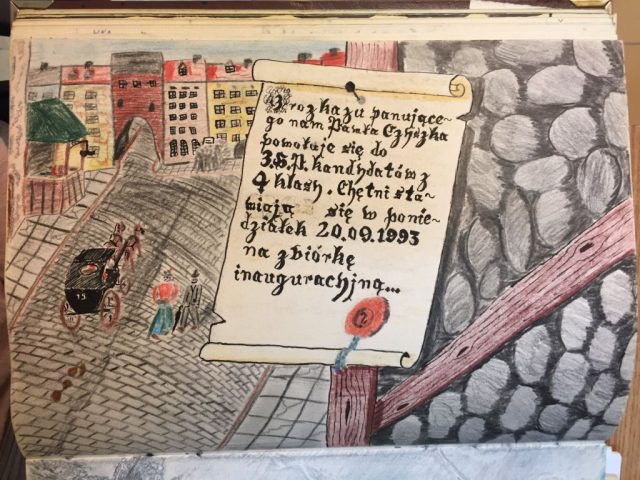 Z rozkazu panujące-
go nam Pawła Czyszka
powołuje się do
3.Ś.P. kandydatów z
4 klasy. Chętni sta-
wiają się w ponie-
działek 20.09.1993
na zbiórkę
inauguracyjną...
2
15